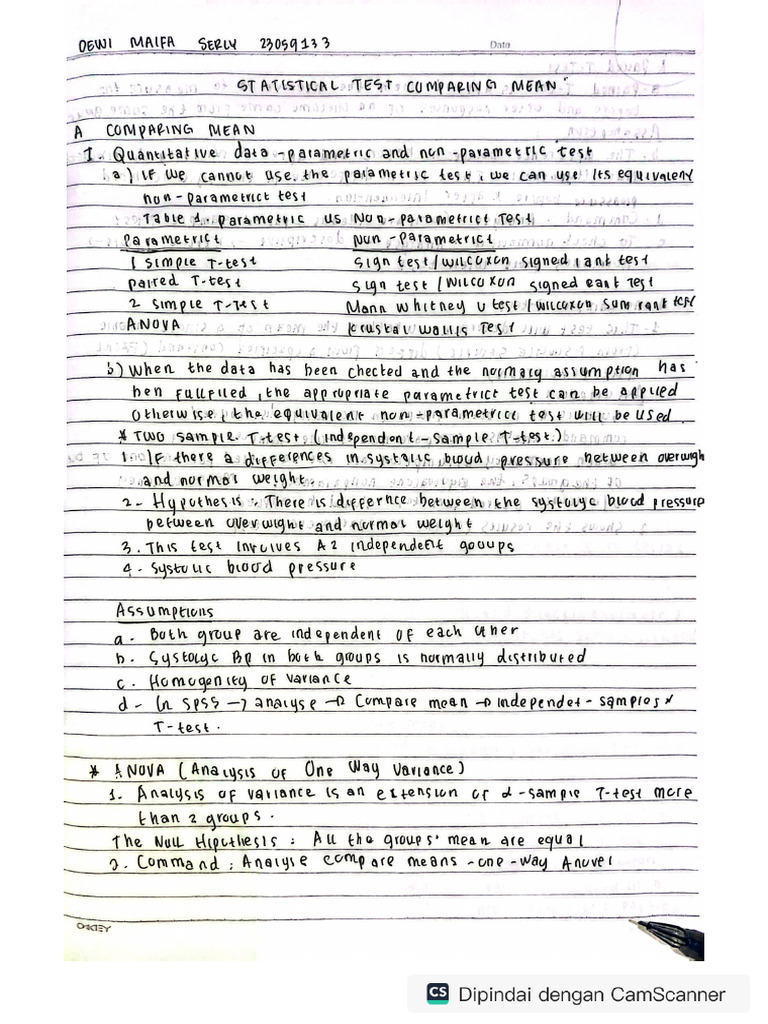 DEWI MAIFA SERLY 23059133
Date
STATISTICAL TEST COMPARING MEAN
A COMPARING MEAN
I. Quantitative data -parametric and non -parametric test
a) If we cannot use the parametric test, we can use its equivalent
non-parametrict test
Table 1. parametric us Non-parametrict Test
Parametrict Non-parametrict
1 simple T-test sign test/wilcoxon signed rank test
paired T-test sign test/wilcoxon signed rank test
2 simple T-Test Mann Whitney U test/wilcoxon sum rank test
ANOVA kruskal wallis Test
b) When the data has been checked and the normaly assumption has
ben fullfiled, the appropriate parametrict test can be applied
Otherwise, the equivalent non-parametricc test will be used
* TWO sample T-test (independent-sample T-test)
1. If there a differences in systalic blood pressure between overwigh
and normal weight.
2- Hypothesis : There is differnce between the systolyc blood pressure
between overwight and normal weight
3. This test involves A 2 independent gooups
4. Systolic blood pressure
Assumptions
a. Both group are independent of each other
b. Systolyc Bp in both groups is normally distributed
c. Homogenity of variance
d- In SPSS → analyse → Compare mean → independet-samples
T-test.
* ANOVA (Analysis of One Way Variance)
1. Analysis of variance is an extension of 2-sample T-test more
than 2 groups.
The Null Hipothesis : All the groups' mean are equal
2. Command : Analyse compare means -one-way
CS Dipindai dengan CamScanner